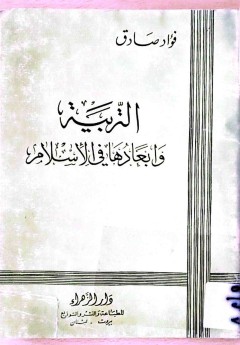 فؤاد صادق
التربية
وابعادها في الاسلام
دار الزهراء
للطباعة والنشر والتوزيع
بيروت - لبنان